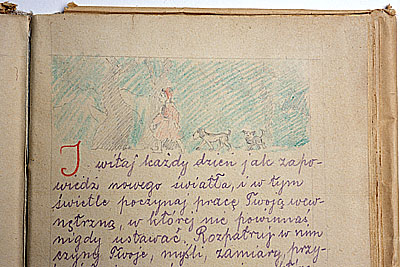 I witaj każdy dzień jak zapo-
wiedź nowego światła, i w tym
świetle poczynaj pracę Twoją wew-
nętrzną, w której nie powinnaś
nigdy ustawać. Rozpatruj w nim
czyny Twoje, myśli, zamiary, przy-